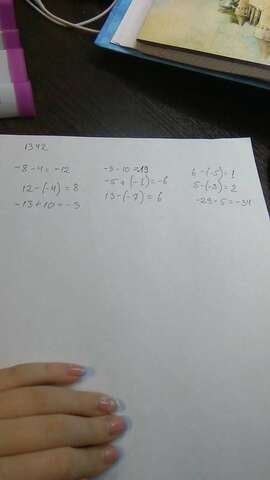 1342
-8-4=-12
12-(-4)=8
-13+10=-3
-9-10=19
-5+(-1)=-6
13-(-7)=6
6-(-5)=1
5-(-3)=2
-29-5=-34